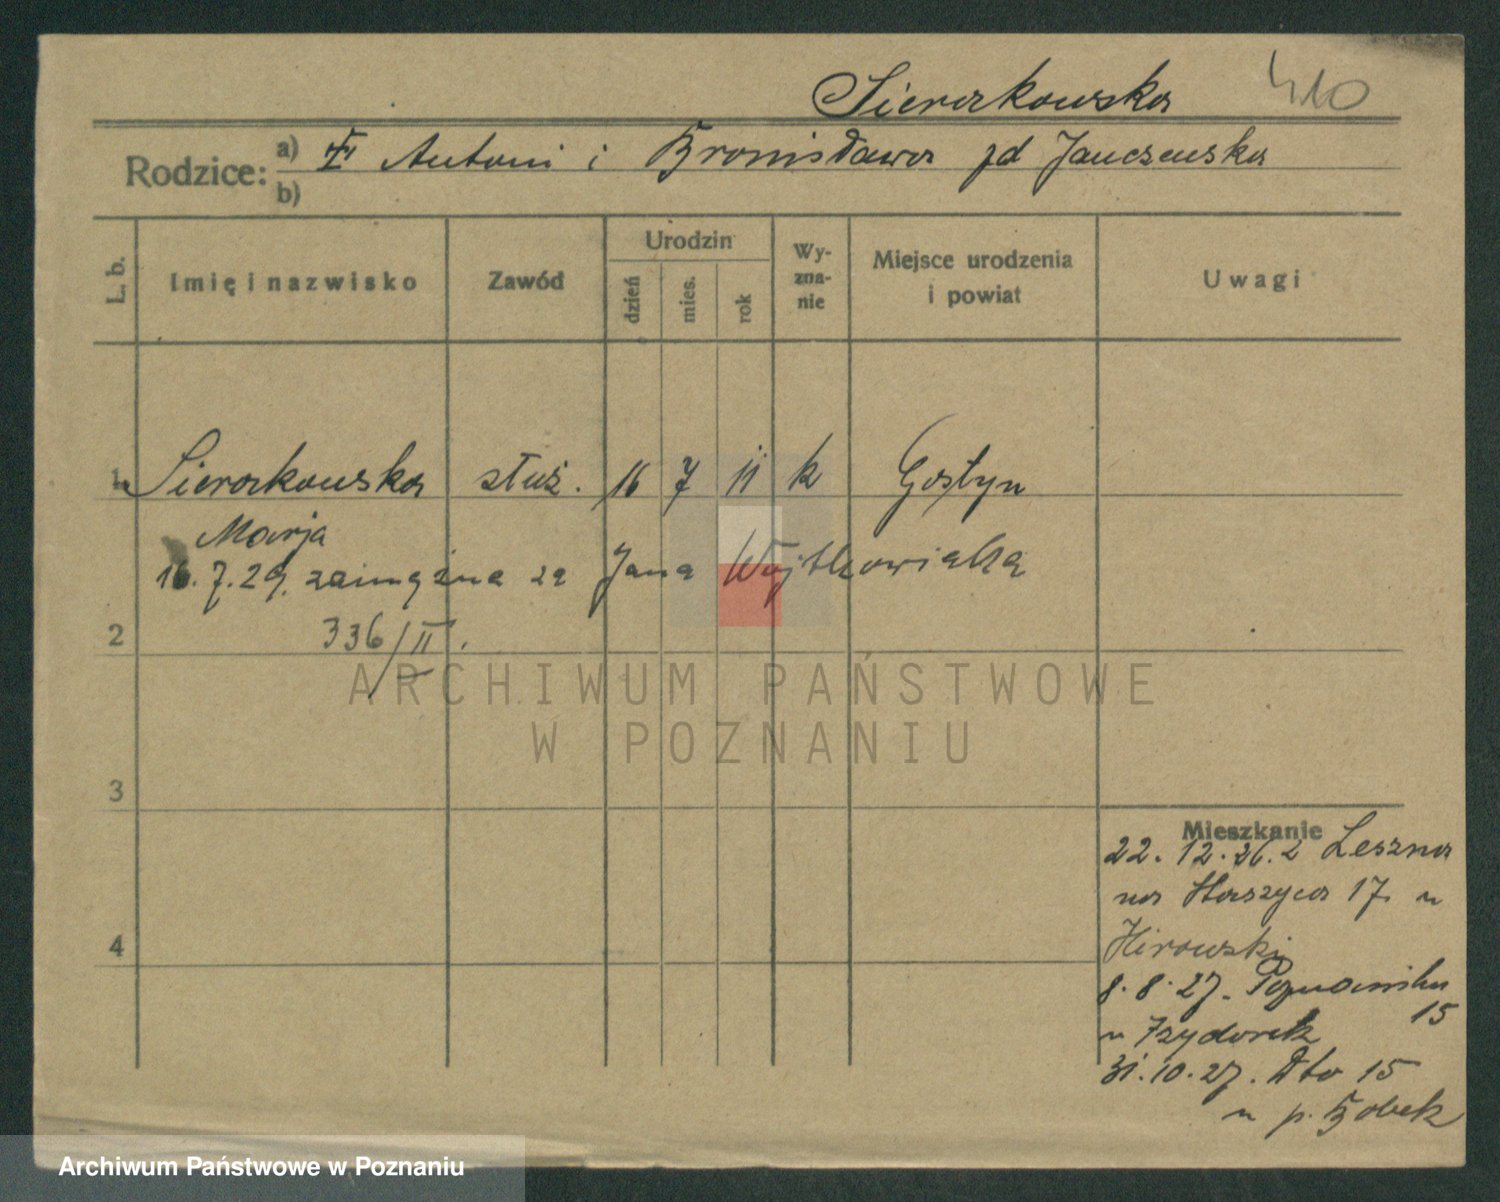 Sierakowska 410
Rodzice: a) Antoni i Bronisława zd Janczewska
b)
L. b. Imię i nazwisko Zawód Urodzin dzień mies. rok Wy-zna-nie Miejsce urodzenia i powiat Uwagi
1 Sierakowska służ. 16 7 11 k Gostyn
Marja
16.7.29. zamężna za Jana Wojtkowiaka
2 336/II.
3
4
Mieszkanie
22.12.26. z Leszna
na 17. u
8.8.27. 15
u Izydorek
31.10.27. Dto 15
u p. Bobek
ARCHIWUM PAŃSTWOWE
W POZNANIU
Archiwum Państwowe w Poznaniu